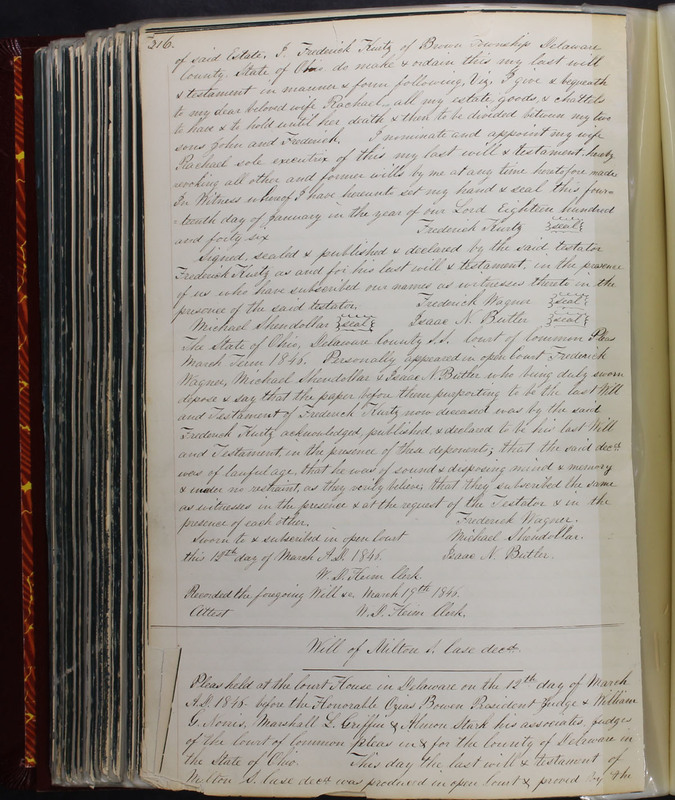 316.
of said Estate. I. Frederick Kurtz of Brown Township Delaware
County, State of Ohio do make & ordain this my last will
& testament in manner & form following, Viz, I give & bequeath
to my dear beloved wife Rachael, all my estate, goods, & chattels
to have & to hold until her death & then to be divided between my two
sons John and Frederick. I nominate and appoint my wife
Rachael sole executrix of this my last will & testament, hereby
revoking all other and former wills by me at any time heretofore made
In Witness whereof I have hereunto set my hand & seal this four-
-teenth day of January in the year of our Lord Eighteen hundred
and forty six Frederick Kurtz {seal}
Signed, sealed & published & declared by the said testator
Frederick Kurtz as and for his last will & testament, in the presence
of us who have subscribed our names as witnesses thereto in the
presence of the said testator. Frederick Wagner {seal}
Michael Shendollar {seal} Isaac N. Butler {seal}
The State of Ohio, Delaware County S.S. Court of Common Pleas
March Term 1846. Personally appeared in open Court Frederick
Wagner, Michael Shendollar & Isaac N. Butler who being duly sworn
depose & say that the paper before them purporting to be the last Will
and Testament of Frederick Kurtz now deceased was by the said
Frederick Kurtz acknowledged, published & declared to be his last Will
and Testament, in the presence of these deponents; that the said decd.
was of lawful age, that he was of sound & disposing mind & memory
& under no restraint, as they verily believe; that they subscribed the same
as witnesses in the presence & at the request of the Testator & in the
presence of each other. Frederick Wagner.
Sworn to & subscribed in open Court Michael Shendollar.
this 12th day of March A.D. 1846. Isaac N. Butler.
W. D. Heim Clerk
Recorded the foregoing Will &c. March 19th 1846.
Attest W. D. Heim Clerk.
Will of Milton S. Case decd.
Pleas held at the Court House in Delaware on the 12th day of March
A.D. 1846 before the Honorable Ozias Bowen President Judge & William
G. Norris, Marshall L. Griffin & Almon Stark his associates, judges
of the Court of Common Pleas in & for the County of Delaware in
the State of Ohio. This day the last will & testament of
Milton S. Case decd. was produced in open Court & proved by the